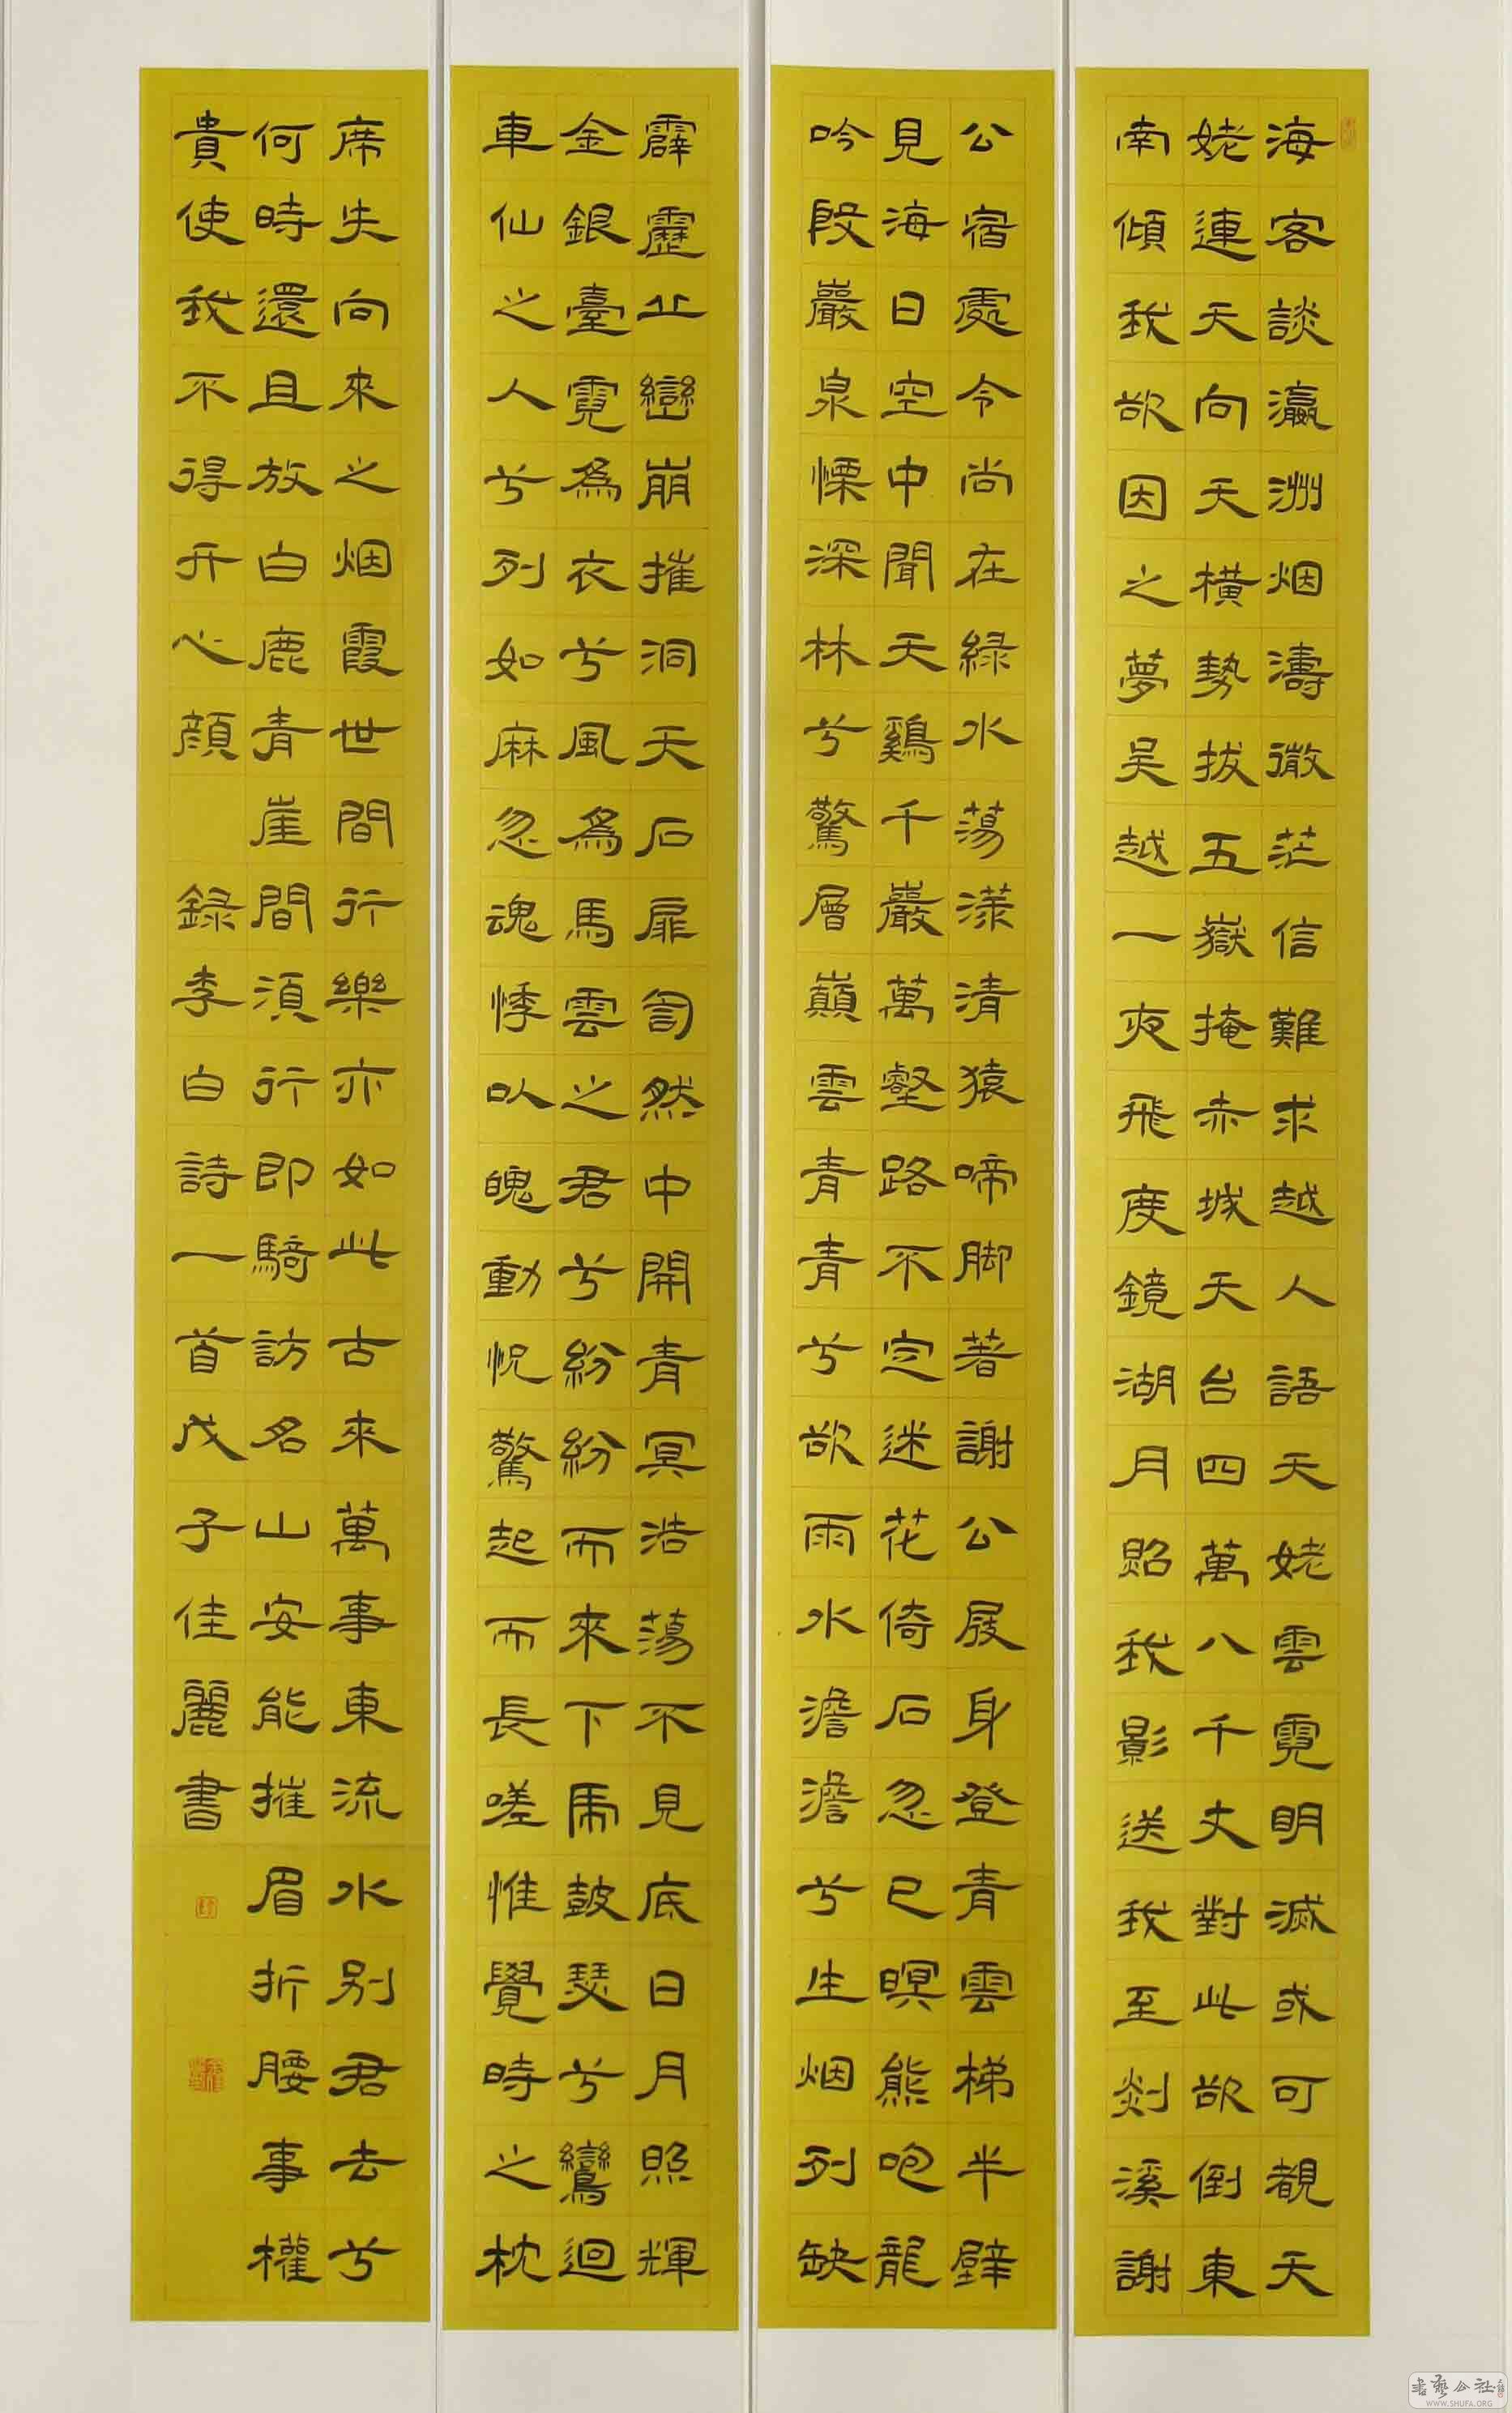 海客談瀛洲烟濤微茫信難求越人語天姥雲霓明滅或可覩天
姥連天向天橫勢拔五嶽掩赤城天台四萬八千丈對此欲倒東
南傾我欲因之夢吳越一夜飛度鏡湖月照我影送我至剡溪謝
公宿處今尚在綠水蕩漾清猿啼脚著謝公屐身登青雲梯半壁
見海日空中聞天鷄千巖萬壑路不定迷花倚石忽已暝熊咆龍
吟殷巖泉慄深林兮驚層巔雲青青兮欲雨水澹澹兮生烟列缺
霹靂丘巒崩摧洞天石扉訇然中開青冥浩蕩不見底日月照輝
金銀臺霓爲衣兮風爲馬雲之君兮紛紛而來下虎鼓瑟兮鸞迴
車仙之人兮列如麻忽魂悸以魄動怳驚起而長嗟惟覺時之枕
席失向來之烟霞世間行樂亦如此古來萬事東流水別君去兮
何時還且放白鹿青崖間須行即騎訪名山安能摧眉折腰事權
貴使我不得开心顏 錄李白詩一首戊子佳麗書
書藝公社
WWW.SHUFA.ORG